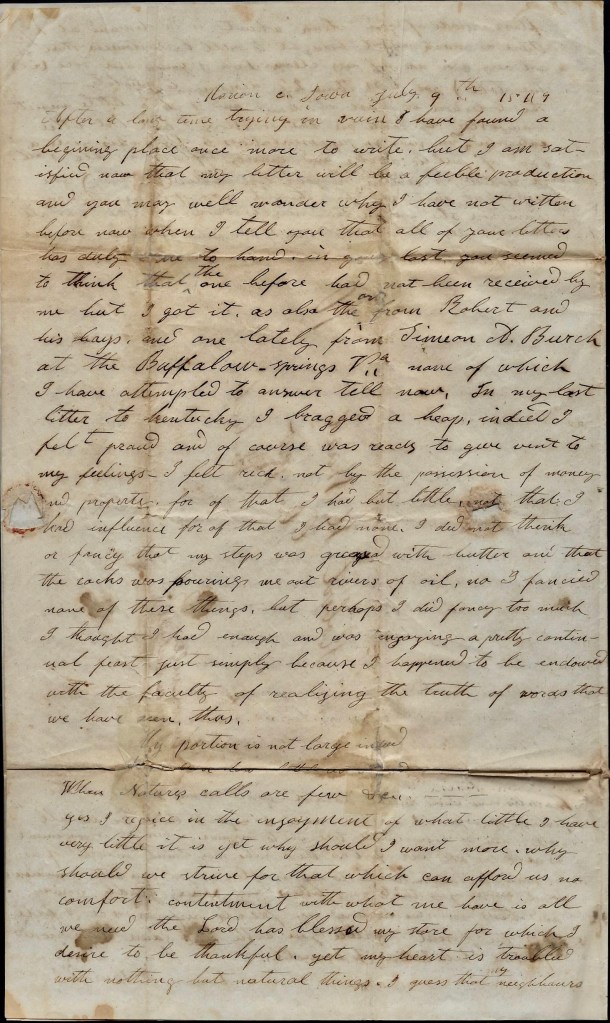 Marion c. Iowa July 9th 1849
After a long time trying in vain I have found a
begining place once more to write. but I am sat-
isfied now that my letter will be a feeble production
and you may well wonder why I have not written
before now when I tell you that all of your letters
has duly come to hand. in your last you seemed
to think that the one before had not been received by
me but I got it. as also the one from Robert and
his boys. and one lately from Simeon A. Burch
at the Buffalow-springs Va none of which
I have attempted to answer tell now. In my last
letter to kentucky I bragged a heap, indied I
felt proud and of course was ready to give vent to
my feelings - I felt rich. not by the possession of money
and property. for of that I had but little. not that I
had influence for of that I had none. I did not think
or fancy that my steps was greased with butter and that
the rocks was pouring me out rivers of oil, no I fancied
none of these things. but perhaps I did fancy too much
I thought I had enough and was injoying a pretty contin-
ual feast just simply because I happened to be endowed
with the faculty of realizing the truth of words that
we have seen, thus.
My portion is not large indeed
When Natures calls are few
yes I rejoice in the injoyment of what little I have
very little it is yet why should I want more. why
should we strive for that which can afford us no
comfort. contentment with what we have is all
we need the Lord has blessed my store for which I
desire to be thankful. yet my heart is troubled
with nothing but natural things. I guess that my neighbours